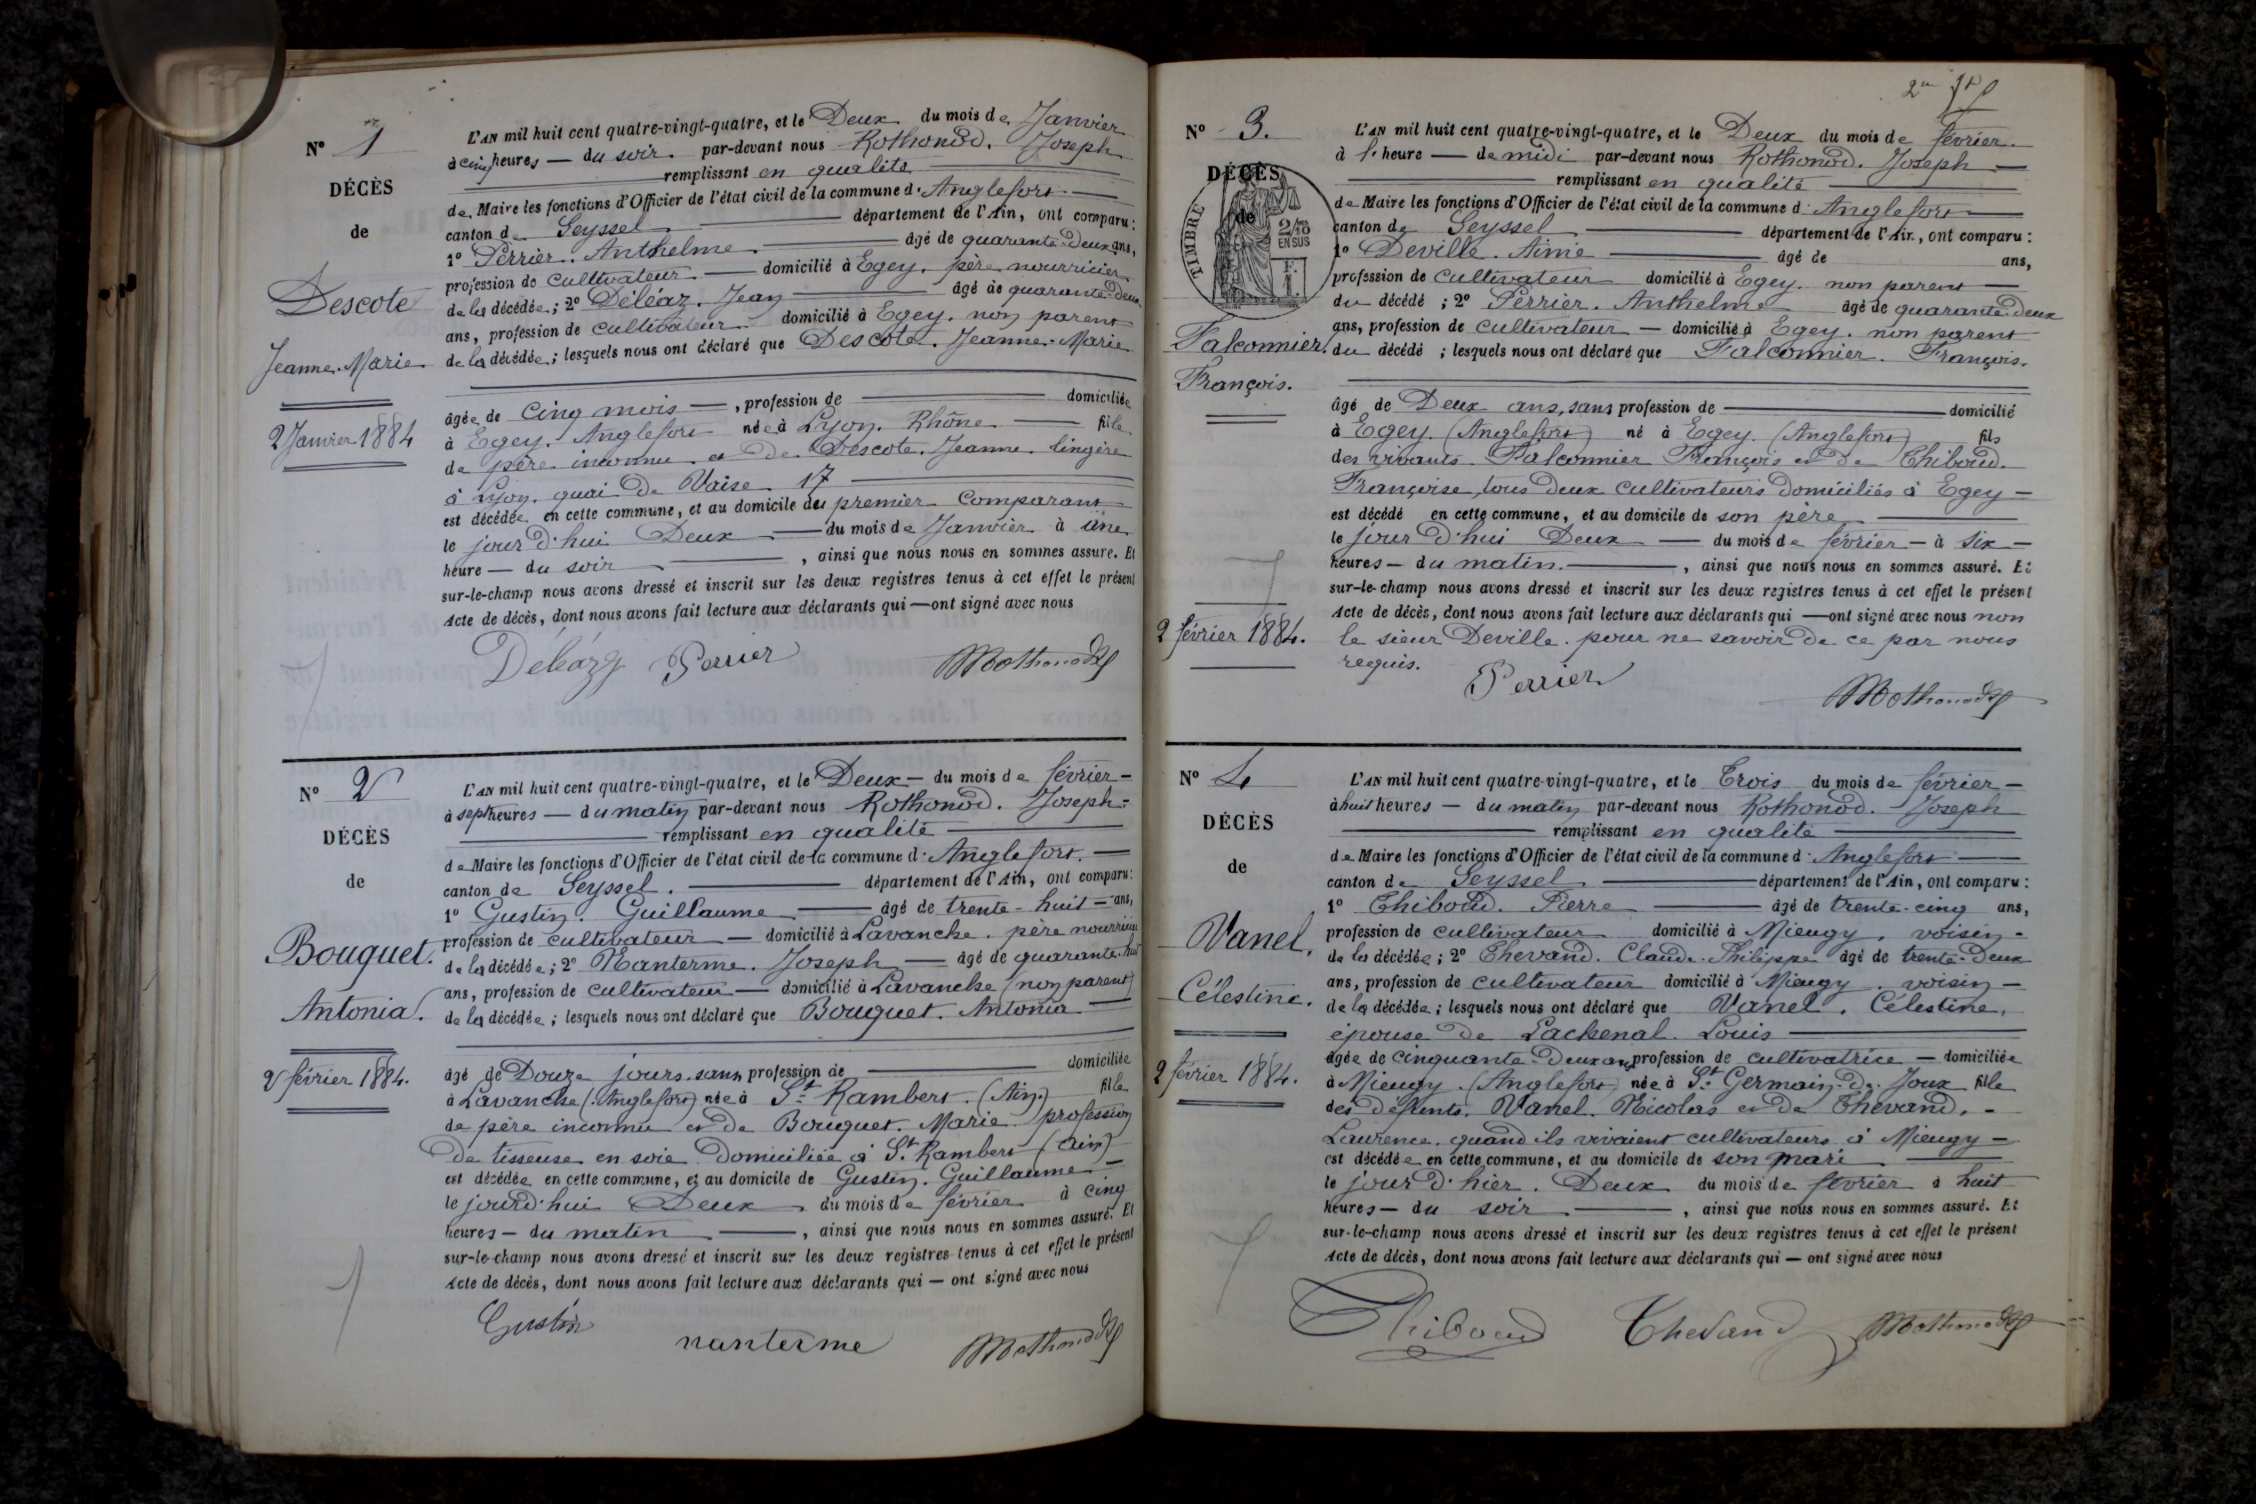 Nº 1
DÉCÈS
de
Descote
Jeanne-Marie
2 Janvier 1884
L'AN mil huit cent quatre-vingt-quatre, et le Deux du mois de Janvier
à cinq heures — du soir. par-devant nous Rothonod. Joseph
remplissant en qualité
de Maire les fonctions d'Officier de l'état civil de la commune d'Anglefort
canton de Seyssel département de l'Ain, ont comparu:
1º Perrier. Anthelme âgé de quarante-deux ans,
profession de cultivateur domicilié à Egey. père nourricier
de la décédée; 2º Déléaz. Jean âgé de quarante-deux
ans, profession de cultivateur domicilié à Egey. non parent
de la décédée; lesquels nous ont déclaré que Descote. Jeanne-Marie
âgée de cinq mois —, profession de domiciliée
à Egey. Anglefort née à Lyon. Rhône fille
de père inconnu et de Descote. Jeanne. lingère
à Lyon. quai de Vaise 17
est décédée en cette commune, et au domicile du premier comparant
le jour d'hui Deux du mois de Janvier à une
heure — du soir , ainsi que nous nous en sommes assuré. Et
sur-le-champ nous avons dressé et inscrit sur les deux registres tenus à cet effet le présent
Acte de décès, dont nous avons fait lecture aux déclarants qui — ont signé avec nous
Déléaz Perrier Rothonod
Nº 2
DÉCÈS
de
Bouquet.
Antonia.
2 février 1884.
L'AN mil huit cent quatre-vingt-quatre, et le Deux — du mois de février —
à sept heures — du matin par-devant nous Rothonod. Joseph
remplissant en qualité
de Maire les fonctions d'Officier de l'état civil de la commune d'Anglefort.
canton de Seyssel. département de l'Ain, ont comparu:
1º Gustin. Guillaume âgé de trente-huit ans,
profession de cultivateur — domicilié à Lavanche. père nourricier
de la décédée; 2º Nanterme. Joseph — âgé de quarante-huit
ans, profession de cultivateur — domicilié à Lavanche (non parent)
de la décédée; lesquels nous ont déclaré que Bouquet. Antonia
âgé de Douze jours. sans profession de domiciliée
à Lavanche (Anglefort) née à St Rambert. (Ain.) fille
de père inconnu et de Bouquet. Marie profession
de tisseuse en soie domiciliée à St Rambert (Ain)
est décédée en cette commune, et au domicile de Gustin. Guillaume —
le jourd'hui Deux du mois de février à cinq
heures — du matin , ainsi que nous nous en sommes assuré. Et
sur-le-champ nous avons dressé et inscrit sur les deux registres tenus à cet effet le présent
Acte de décès, dont nous avons fait lecture aux déclarants qui — ont signé avec nous
Gustin
nanterme Rothonod
Nº 3.
DÉCÈS
de
TIMBRE
2/10
EN SUS
Falconnier.
François.
2 février 1884.
L'AN mil huit cent quatre-vingt-quatre, et le Deux du mois de février.
à 1. heure — de midi par-devant nous Rothonod. Joseph —
remplissant en qualité
de Maire les fonctions d'Officier de l'état civil de la commune d'Anglefort
canton de Seyssel département de l'Ain, ont comparu:
1º Deville. Aimé âgé de ans,
profession de cultivateur domicilié à Egey. non parent —
du décédé; 2º Perrier. Anthelme âgé de quarante-deux
ans, profession de cultivateur — domicilié à Egey. non parent
du décédé; lesquels nous ont déclaré que Falconnier. François.
âgé de Deux ans, sans profession de domicilié
à Egey. (Anglefort) né à Egey. (Anglefort) fils
des vivants Falconnier François et de Thiboud.
Françoise, tous deux cultivateurs domiciliés à Egey —
est décédé en cette commune, et au domicile de son père
le jour d'hui Deux — du mois de février — à six —
heures — du matin. , ainsi que nous nous en sommes assuré. Et
sur-le-champ nous avons dressé et inscrit sur les deux registres tenus à cet effet le présent
Acte de décès, dont nous avons fait lecture aux déclarants qui — ont signé avec nous non
le sieur Deville. pour ne savoir de ce par nous
requis.
Perrier
Rothonod
Nº 4
DÉCÈS
de
Vanel.
Célestine.
2 février 1884.
L'AN mil huit cent quatre-vingt-quatre, et le Trois du mois de février —
à huit heures — du matin par-devant nous Rothonod. Joseph
remplissant en qualité
de Maire les fonctions d'Officier de l'état civil de la commune d'Anglefort
canton de Seyssel département de l'Ain, ont comparu:
1º Thiboud. Pierre âgé de trente-cinq ans,
profession de cultivateur domicilié à Mieugy. voisin —
de la décédée; 2º Thevand. Claude-Philippe âgé de trente-deux
ans, profession de cultivateur domicilié à Mieugy. voisin —
de la décédée; lesquels nous ont déclaré que Vanel. Célestine,
épouse de Lachenal. Louis
âgée de cinquante-deux ans profession de cultivatrice — domiciliée
à Mieugy. (Anglefort) née à St Germain-de-Joux fille
des défunts. Vanel. Nicolas et de Thevand. —
Laurence. quand ils vivaient cultivateurs à Mieugy —
est décédée en cette commune, et au domicile de son mari
le jour d'hier. Deux du mois de février à huit
heures — du soir. , ainsi que nous nous en sommes assuré. Et
sur-le-champ nous avons dressé et inscrit sur les deux registres tenus à cet effet le présent
Acte de décès, dont nous avons fait lecture aux déclarants qui — ont signé avec nous
Thiboud Thevand Rothonod